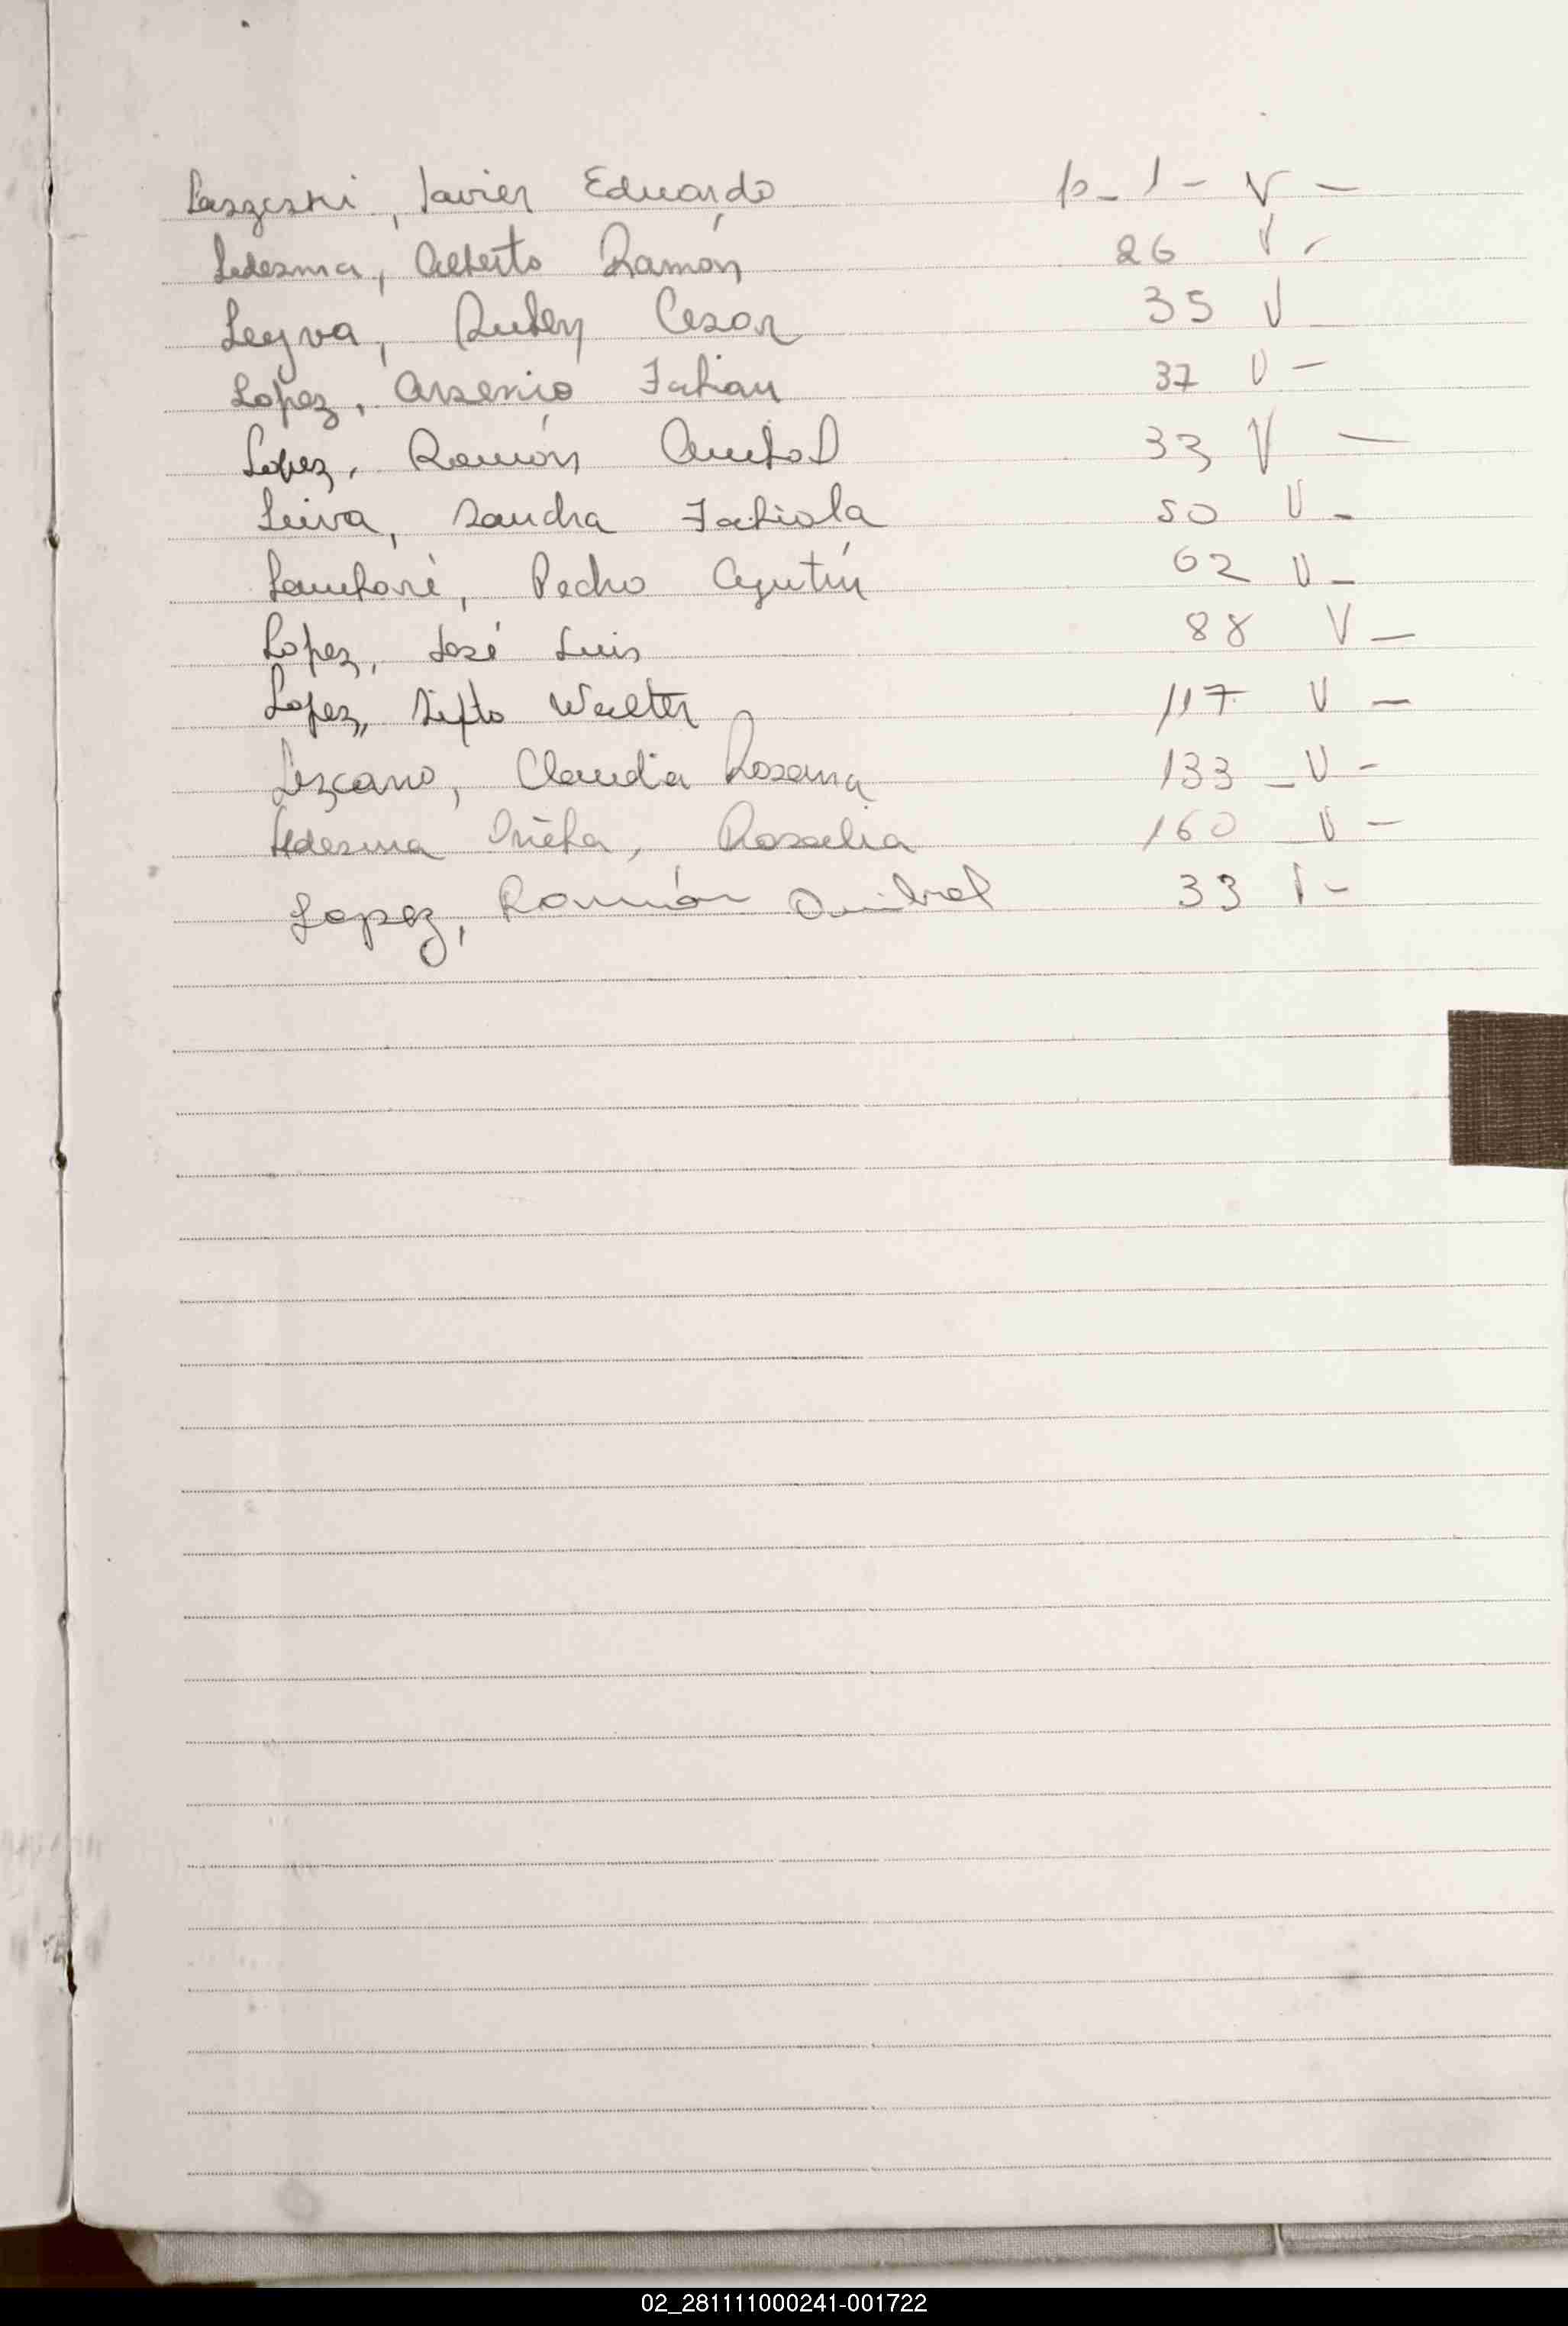 Laszeski, Javier Eduardo p- 1- V -
Ledesma, Alberto Ramón 26 V -
Leyva, Ruben Cesar 35 V -
Lopez, Arsenio Fabian 37 V -
Lopez, Ramón Anibal 33 V -
Leiva, Sandra Fabiola 50 V -
Lambaré, Pedro Agustín 62 V -
Lopez, José Luis 88 V -
Lopez, Sixto Walter 117 V -
Lezcano, Claudia Rosana 133 - V -
Ledesma, Rosalia 160 V -
Lopez, Ramón Anibal 33 V -
02_281111000241-001722